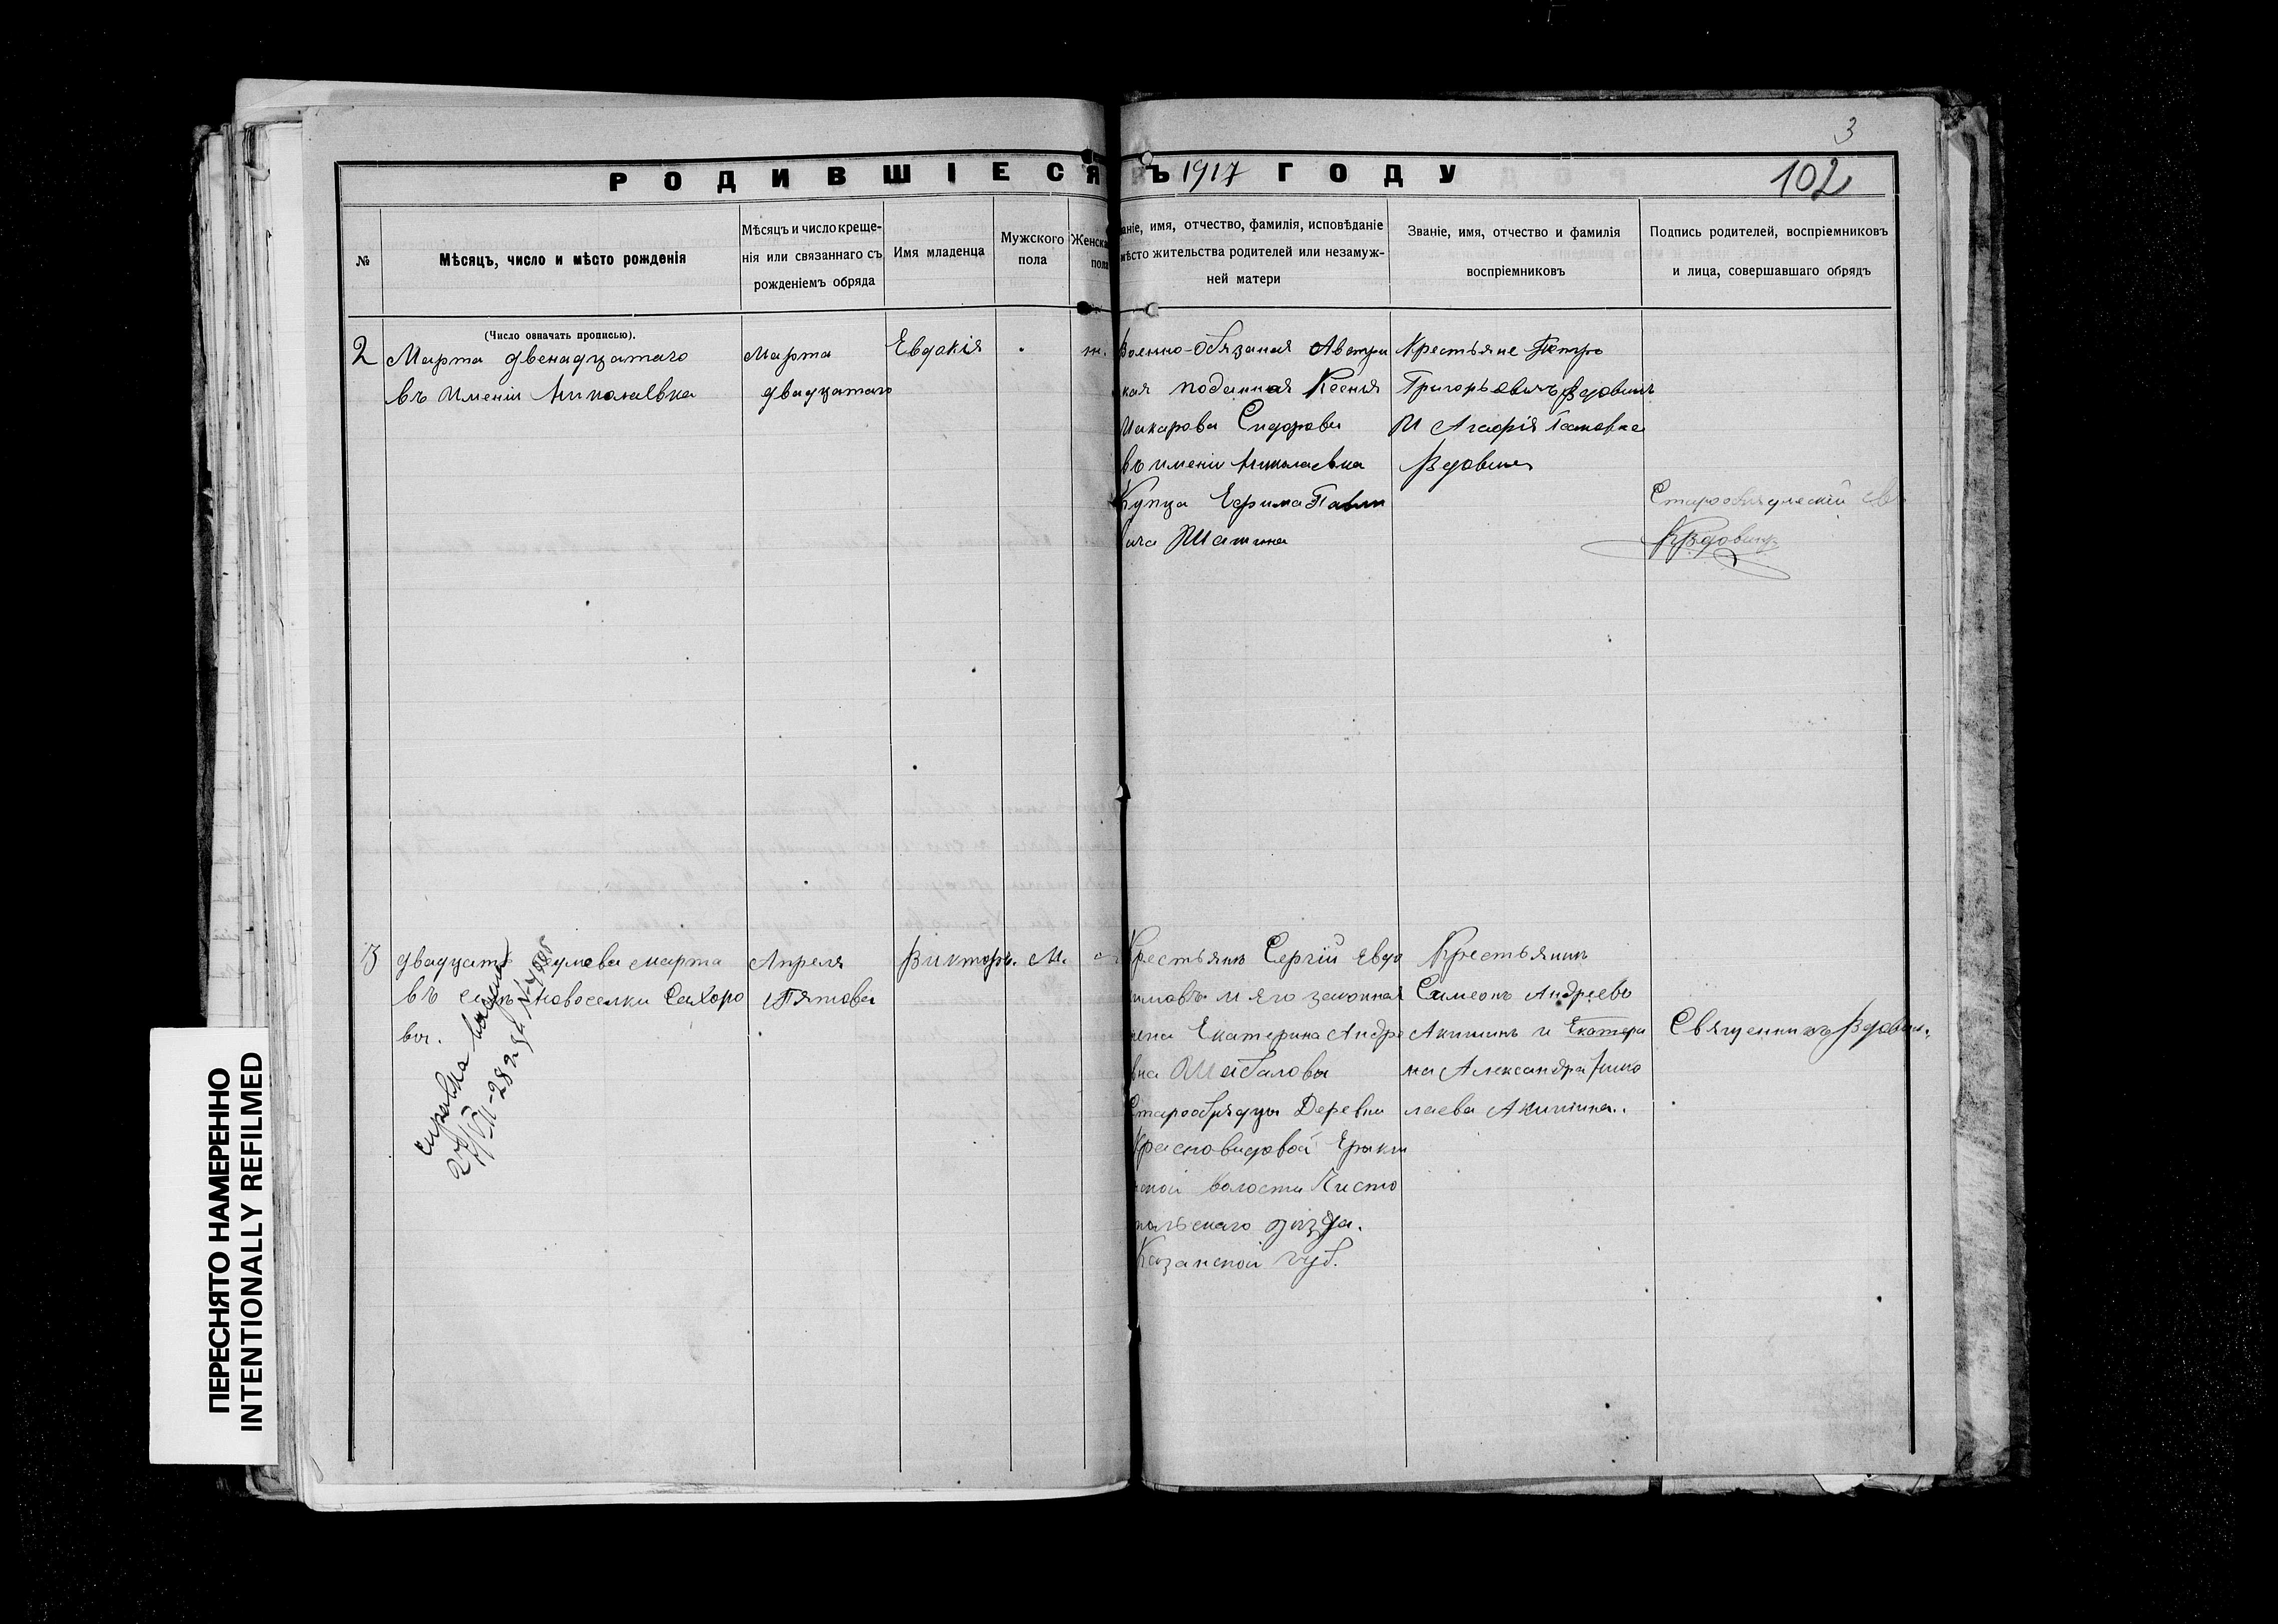 3
РОДИВШІЕСЯ ВЪ 1917 ГОДУ
102
№
Мѣсяцъ, число и мѣсто рожденія
Мѣсяцъ и число креще-
нія или связаннаго съ
рожденіемъ обряда
Имя младенца
Мужского
пола
Женска
пола
аніе, имя, отчество, фамилія, исповѣданіе
мѣсто жительства родителей или незамуж-
ней матери
Званіе, имя, отчество и фамилія
воспріемниковъ
Подпись родителей, воспріемниковъ
и лица, совершавшаго обрядъ
(Число означать прописью).
2
Марта двенадцатаго
въ Имении Николаевка
Марта
двадцатаго
Евдокія
ж.
Военно-Обязаная Австри
кая подданная Ксенья
Макарова Сидорова
въ имении Николаевка
Купца Ефима Павл
вича Шашина
Крестьяне Петръ
Григорьевичъ Вдовинъ
И Агафія
Вдовина
Старообрядческій
КВдовинъ
3
двадцать марта
въ Новоселки Сахоро
ва.
Апреля
Пятова
Викторъ. М.
Крестьянъ Сергій Евдо
имовъ и его законная
жена Екатерина Андре
вна Шабалова
Старообрядцы Деревни
Красновидовой
ской Волости Чисто
польскаго уѣзда.
Казанской губ.
Крестьянинъ
Симеонъ Андреевъ
Акишинъ и Екатери
на Александра Нико
лаева Акишина..
Священникъ Вдовин.
справка выдана
27/VII-28 г. за №
ПЕРЕСНЯТО НАМЕРЕННО
INTENTIONALLY REFILMED